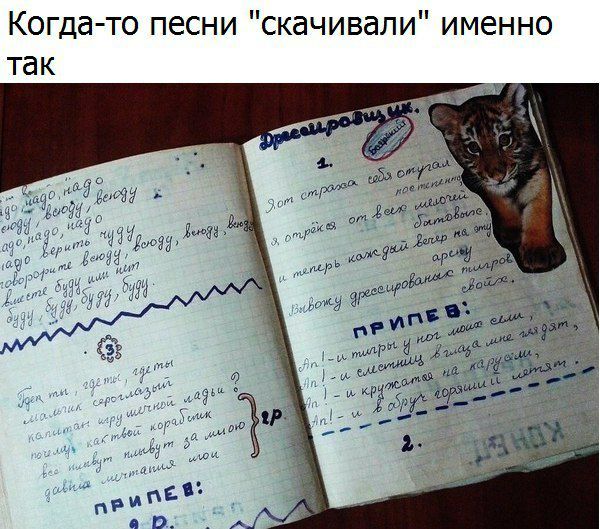 Когда-то песни "скачивали" именно
так
надо, надо
всюду, всюду
надо, надо, надо
надо верить чуду
говороруте всюду, всюду, всюду, всюду
вместе буду или нет
буду, буду, буду, буду.
3
Где ты, где ты, где ты
мальчик сероглазый
капитан игрушечной ладьи ?
почему, как твой кораблик
все плывут плывут за мною
давние мечтания мои
2р.
ПРИПЕВ:
2 р.
Дрессировщик.
Боярский
1.
Я от страха себя отучал
постепенно
я отрёкся от всех мелочей
бытовых.
и теперь каждый вечер на эту
арену
Вывожу дрессированых тигров
своих.
ПРИПЕВ:
Ап! - и тигры у ног моих сели,
Ап! - и с лестниц в глаза мне глядят,
Ап! - и кружатся на карусели,
Ап! - и в обруч горящий летят.
2.